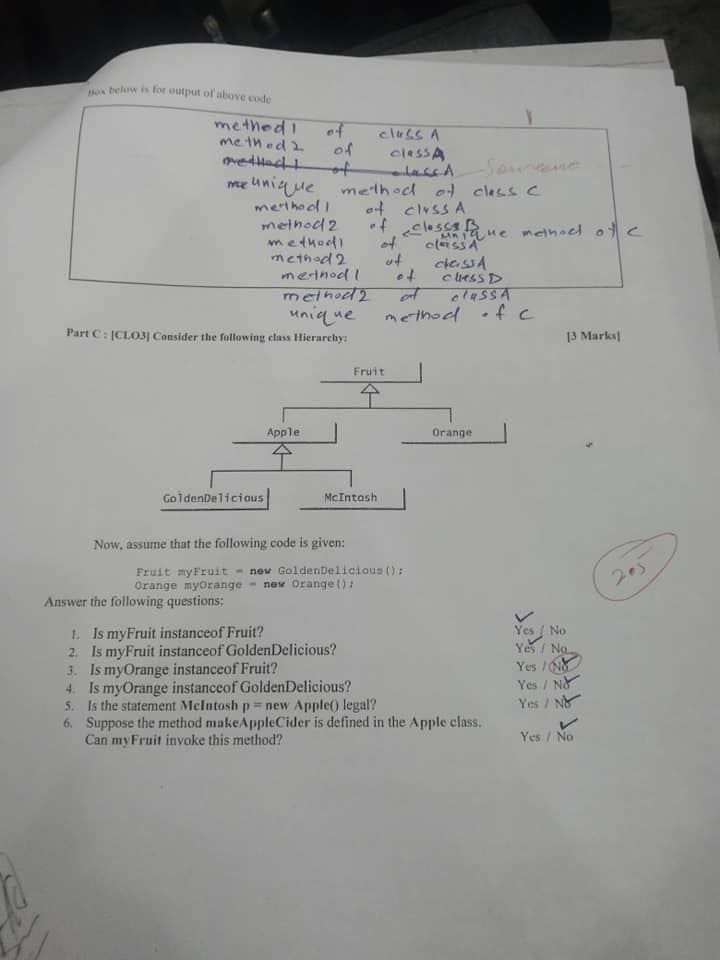 Box below is for output of above code
method1 of class A
method2 of class A
method1 of class A
unique method of class C
method1 of class A
method2 of class B
unique method of C
method1 of class A
method2 of class A
method1 of class D
method2 of class A
unique method of C
Part C : [CLO3] Consider the following class Hierarchy: [3 Marks]
Fruit
Apple Orange
GoldenDelicious McIntosh
Now, assume that the following code is given:
Fruit myFruit = new GoldenDelicious();
Orange myOrange = new Orange();
Answer the following questions:
1. Is myFruit instanceof Fruit? Yes / No
2. Is myFruit instanceof GoldenDelicious? Yes / No
3. Is myOrange instanceof Fruit? Yes / No
4. Is myOrange instanceof GoldenDelicious? Yes / No
5. Is the statement McIntosh p = new Apple() legal? Yes / No
6. Suppose the method makeAppleCider is defined in the Apple class.
Can myFruit invoke this method? Yes / No